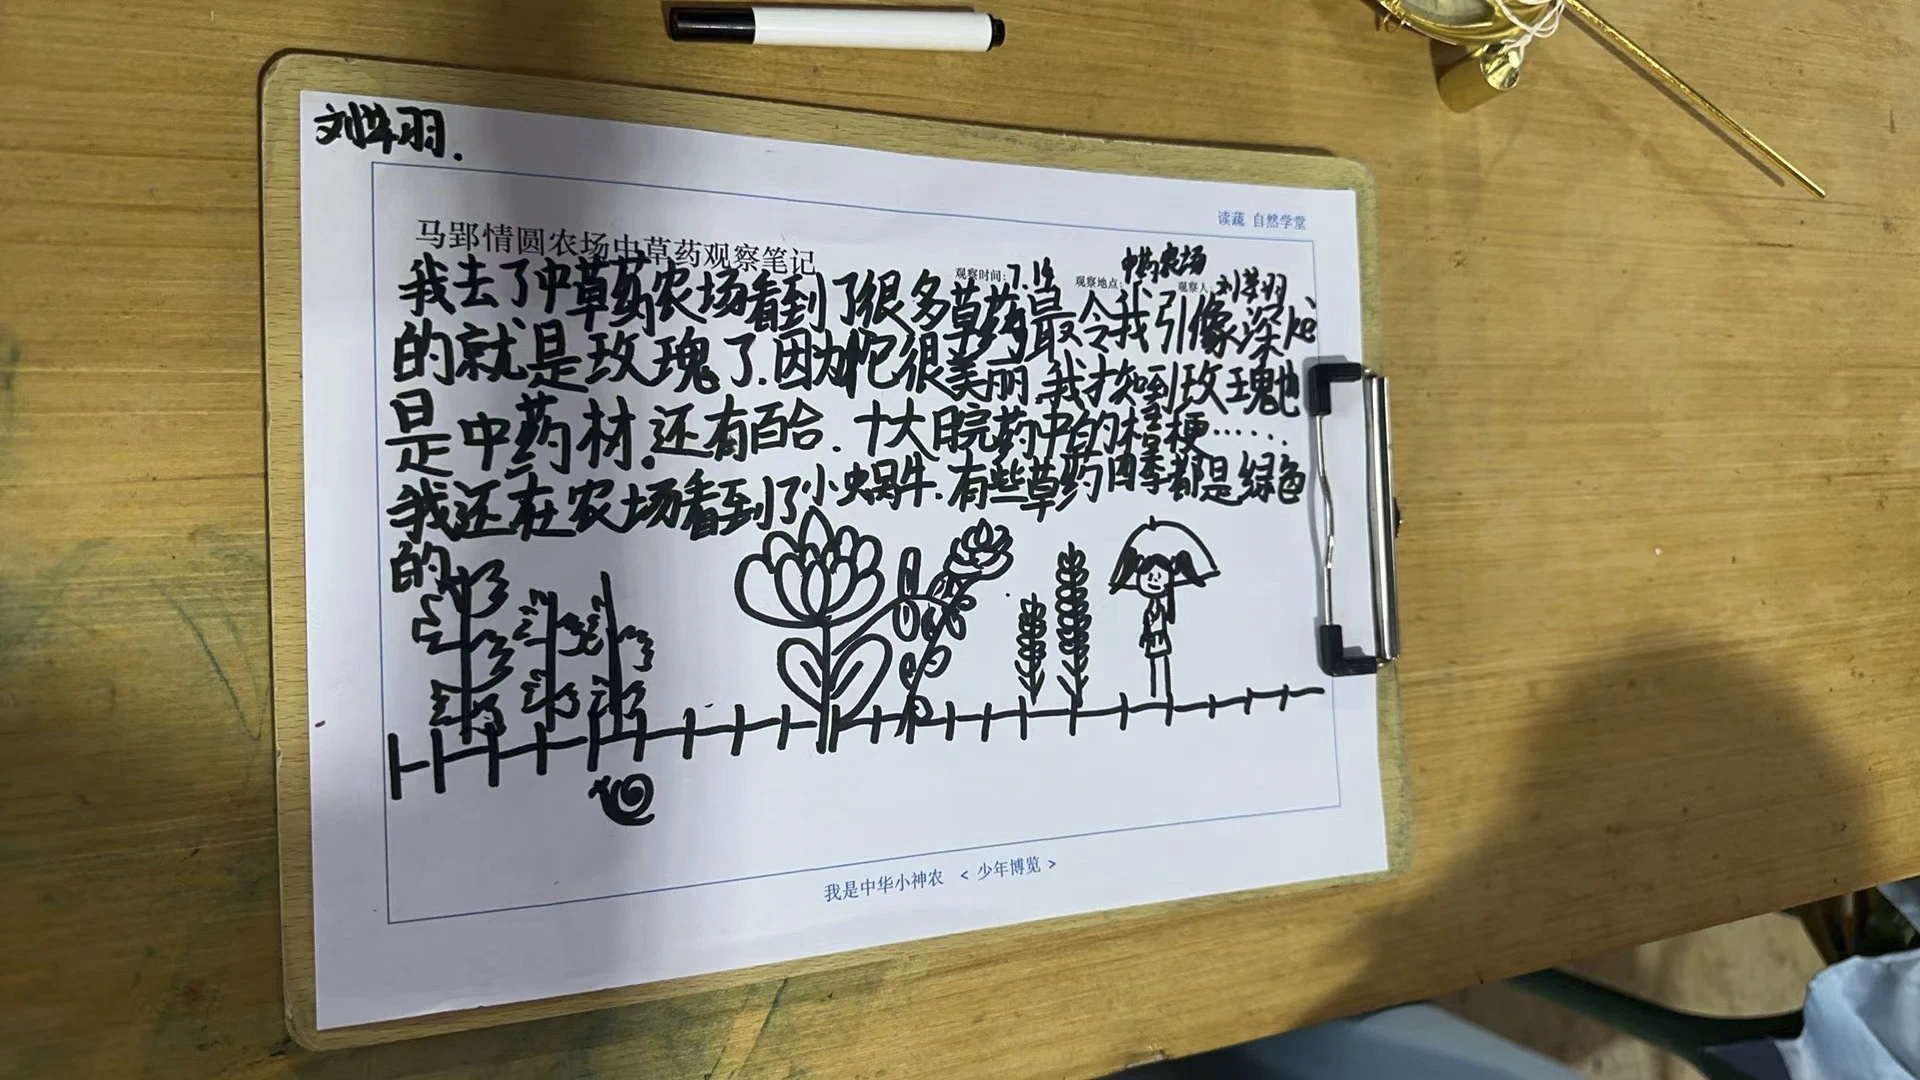 刘梦羽.
读蔬 自然学堂
马郢情圆农场中草药观察笔记
观察时间:7.15 观察地点:中药农场 观察人:刘梦羽
我去了中草药农场看到了很多草药最令我引像深ke
的就是玫瑰了.因为它很美丽.我才知到玫瑰也
是中药材.还有百合.十大皖药中的桔梗……
我还在农场看到了小蜗牛.有些草药四季都是绿色
的
我是中华小神农 < 少年博览 >